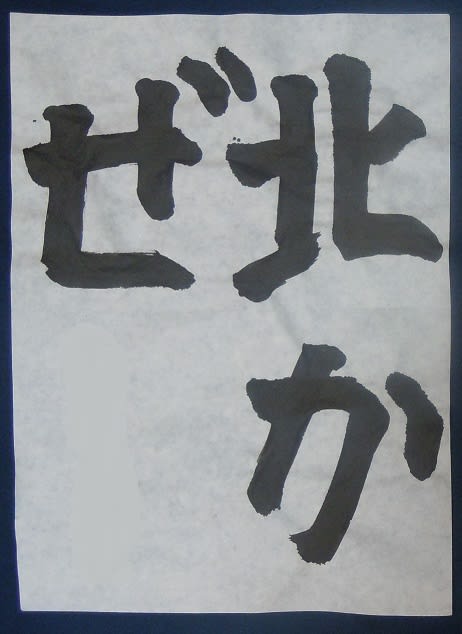 北か
ぜ